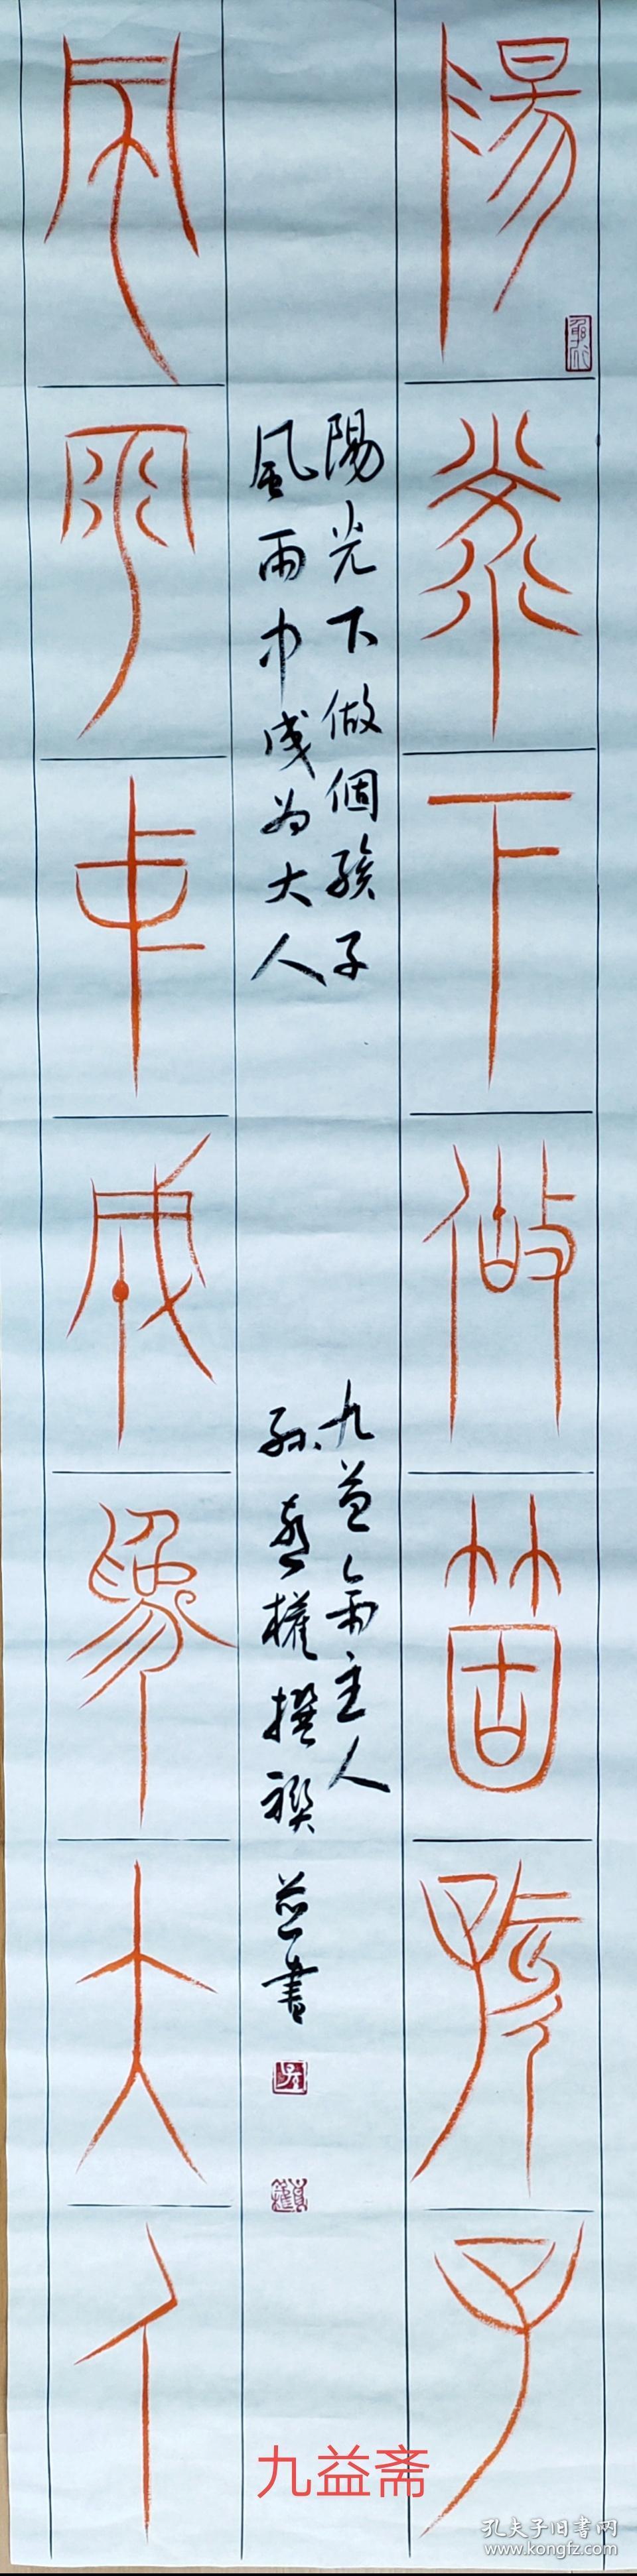 陽光下做箇孩子
陽光下做個孩子
風雨中成為大人
九益斋主人
孙
權撰
並書
風雨中成為大人
九益斋
孔夫子旧書网
www.kongfz.com